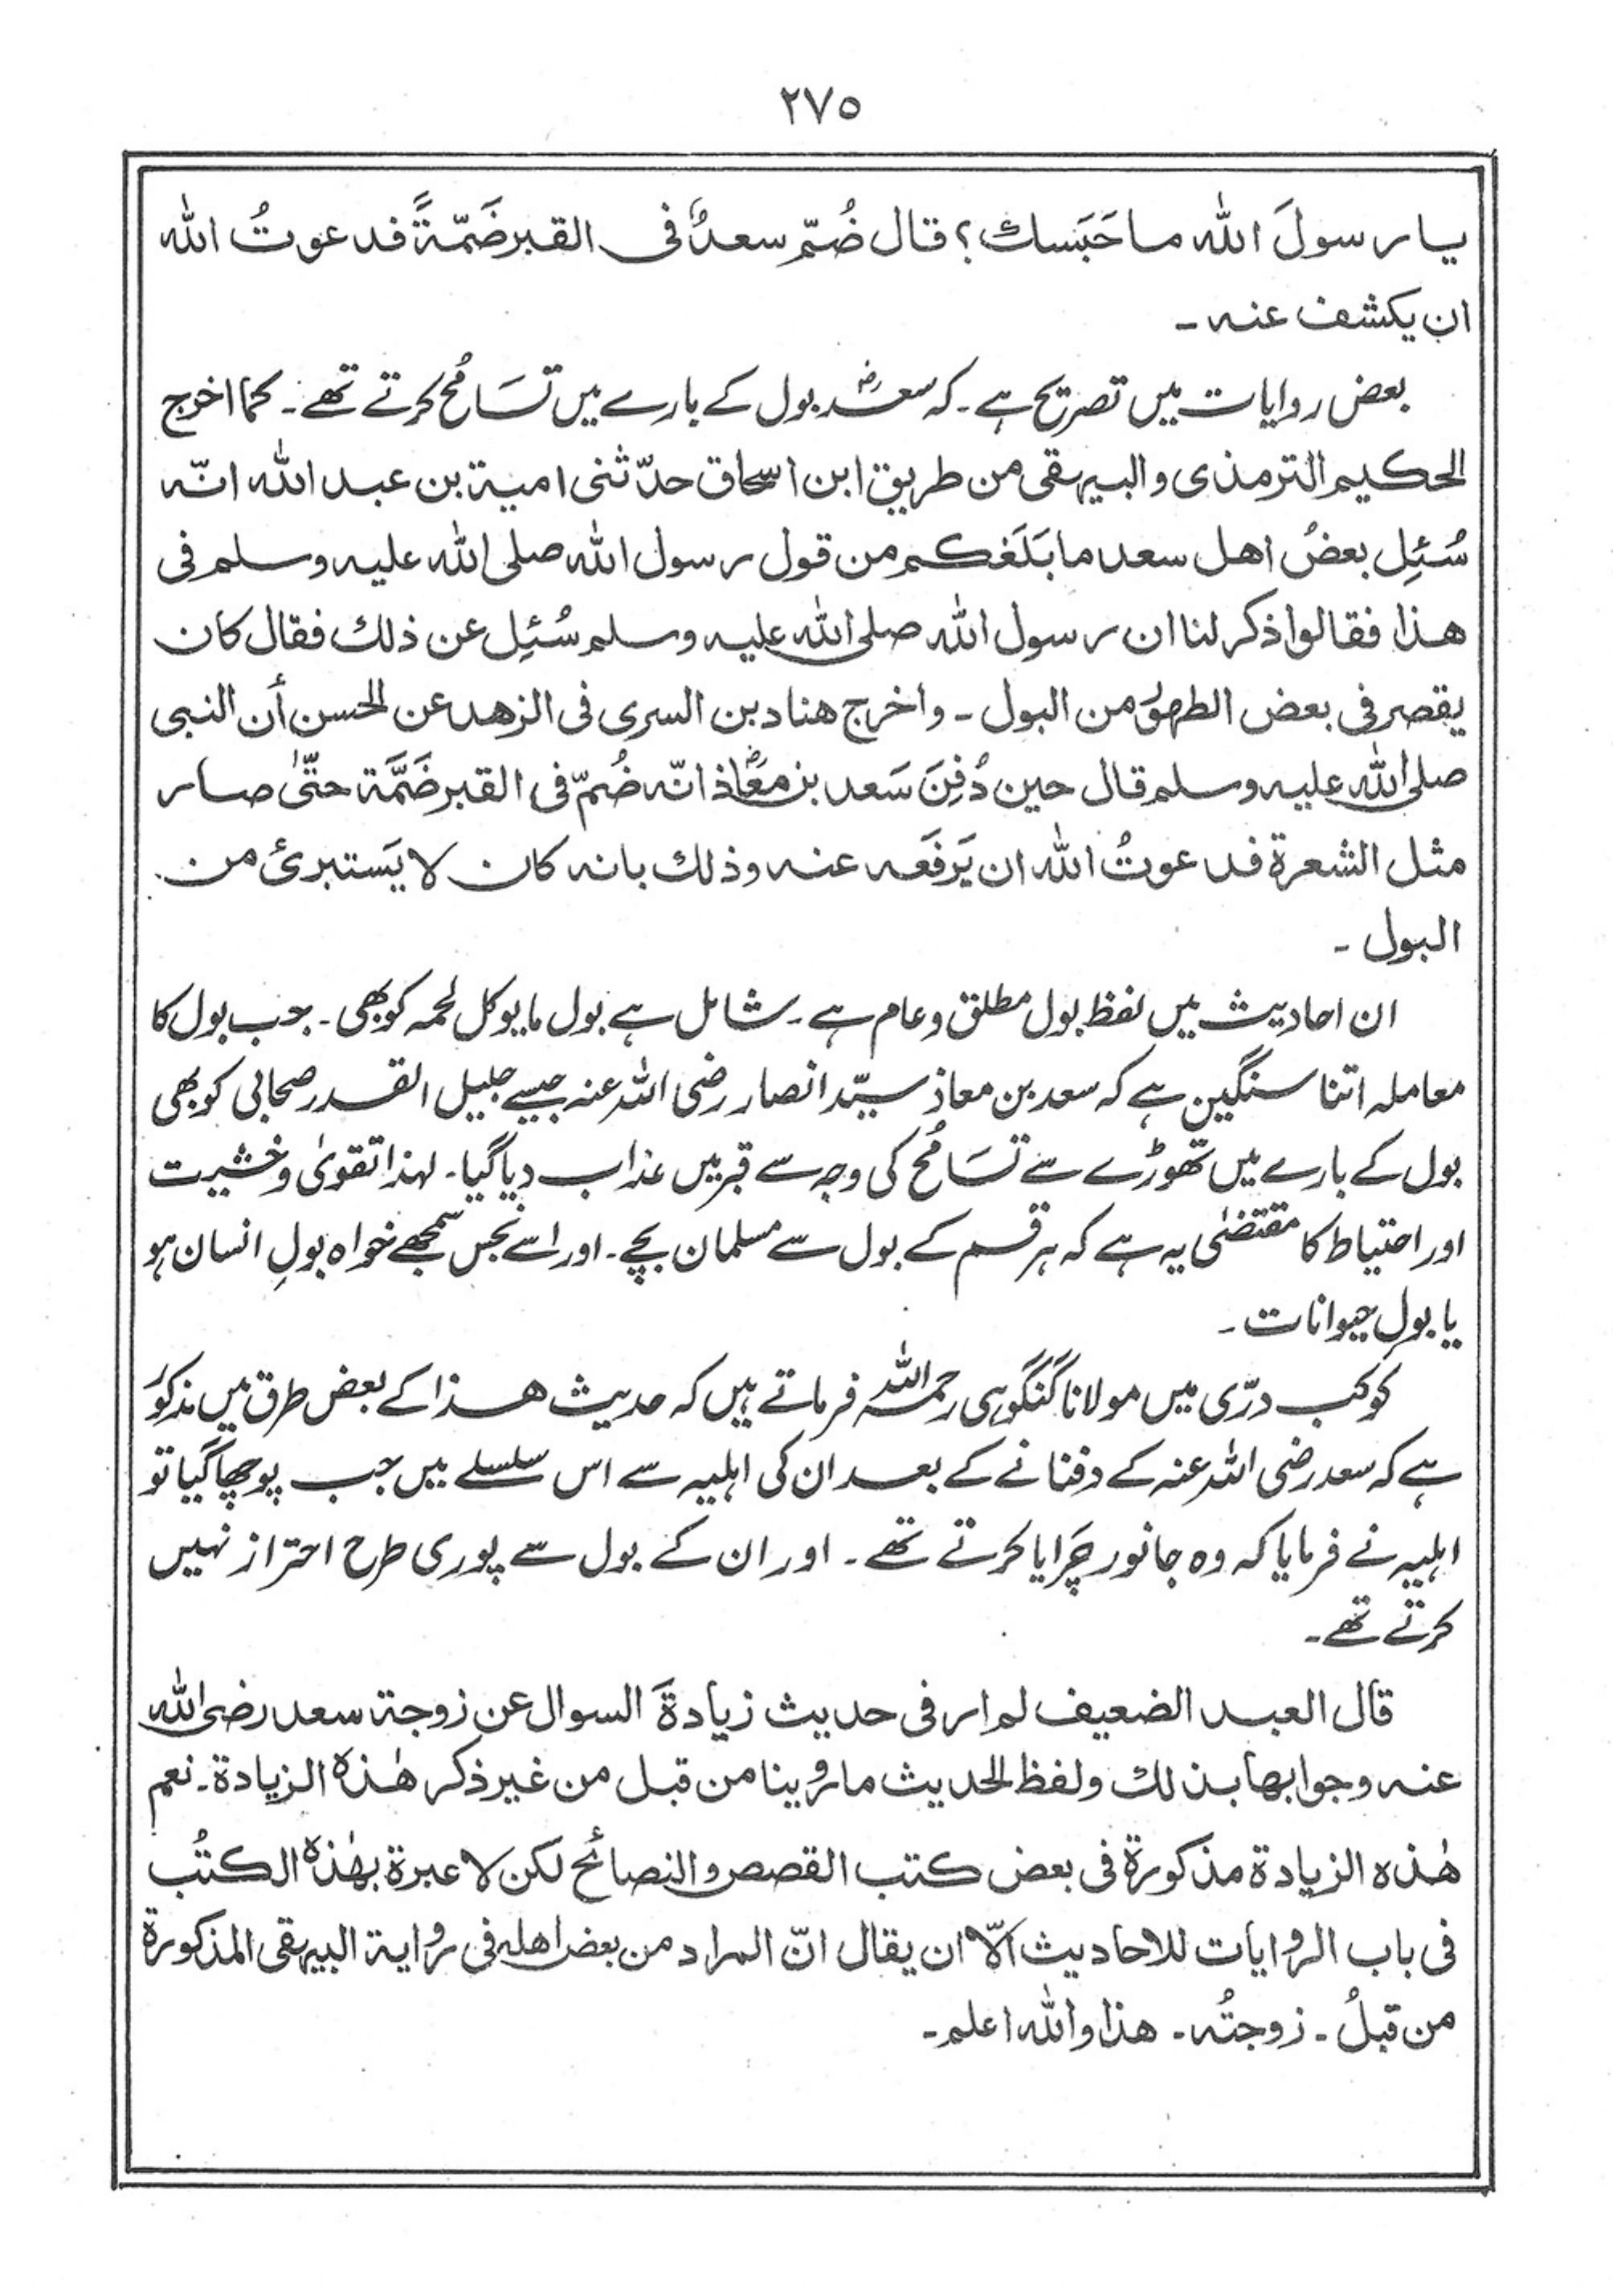 ٢٧٥
یا رسولَ اللہ ما حَبَسك؟ قال ضُمّ سعدٌؓ فی القبر ضَمّةً فدعوتُ اللہ
ان یکشف عنہ ـ
بعض روایات میں تصریح ہے۔ کہ سعدؓ بول کے بارے میں تَسَامُح کرتے تھے۔ کما اخرج
الحکیم الترمذی والبیہقی من طریق ابن اسحاق حدّثنی امیة بن عبد اللہ انّہ
سُئِل بعضُ اھل سعد ما بَلَغَکم من قول رسول اللہ صلی اللہ علیہ وسلم فی
ھذا فقالوا ذکر لنا ان رسول اللہ صلی اللہ علیہ وسلم سُئِل عن ذلك فقال کان
یقصر فی بعض الطھور من البول ـ واخرج ھناد بن السری فی الزھد عن الحسن أن النبی
صلی اللہ علیہ وسلم قال حین دُفِنَ سَعد بن مَعَاذؓ انّہ ضُمّ فی القبر ضَمَّة حتّٰی صار
مثل الشعرة فدعوتُ اللہ ان یَرفَعَہ عنہ وذلك بانہ کان لا یَستبرئ من
البول ـ
ان احادیث میں لفظ بول مطلق و عام ہے۔ شامل ہے بول مایوکل لحمہ کو بھی۔ جب بول کا
معاملہ اتنا سنگین ہے کہ سعد بن معاذ سیّد انصار رضی اللہ عنہ جیسے جلیل القدر صحابی کو بھی
بول کے بارے میں تھوڑے سے تَسَامُح کی وجہ سے قبر میں عذاب دیا گیا۔ لہٰذا تقویٰ و خشیت
اور احتیاط کا مقتضٰی یہ ہے کہ ہر قسم کے بول سے مسلمان بچے۔ اور اسے نجس سمجھے خواہ بولِ انسان ہو
یا بولِ حیوانات ۔
کوکب درّی میں مولانا گنگوہی رحمہ اللہ فرماتے ہیں کہ حدیث ھذا کے بعض طرق میں مذکور
ہے کہ سعد رضی اللہ عنہ کے دفنانے کے بعد ان کی اہلیہ سے اس سلسلے میں جب پوچھا گیا تو
اہلیہ نے فرمایا کہ وہ جانور چَرایا کرتے تھے ۔ اور ان کے بول سے پوری طرح احتراز نہیں
کرتے تھے۔
قال العبد الضعیف لم ار فی حدیث زیادةَ السوال عن زوجة سعد رضی اللہ
عنہ وجوابھا بذلك ولفظ الحدیث ما روینا من قبل من غیر ذکر ھٰذہ الزیادة۔ نعم
ھٰذہ الزیادة مذکورة فی بعض کتب القصص والنصائح لکن لا عبرة بھٰذہ الکتُب
فی باب الروایات للاحادیث اِلّا ان یقال انّ المراد من بعض اھلہ فی روایة البیہقی المذکورة
من قبلُ ۔ زوجتُہ ۔ ھذا واللہ اعلم۔